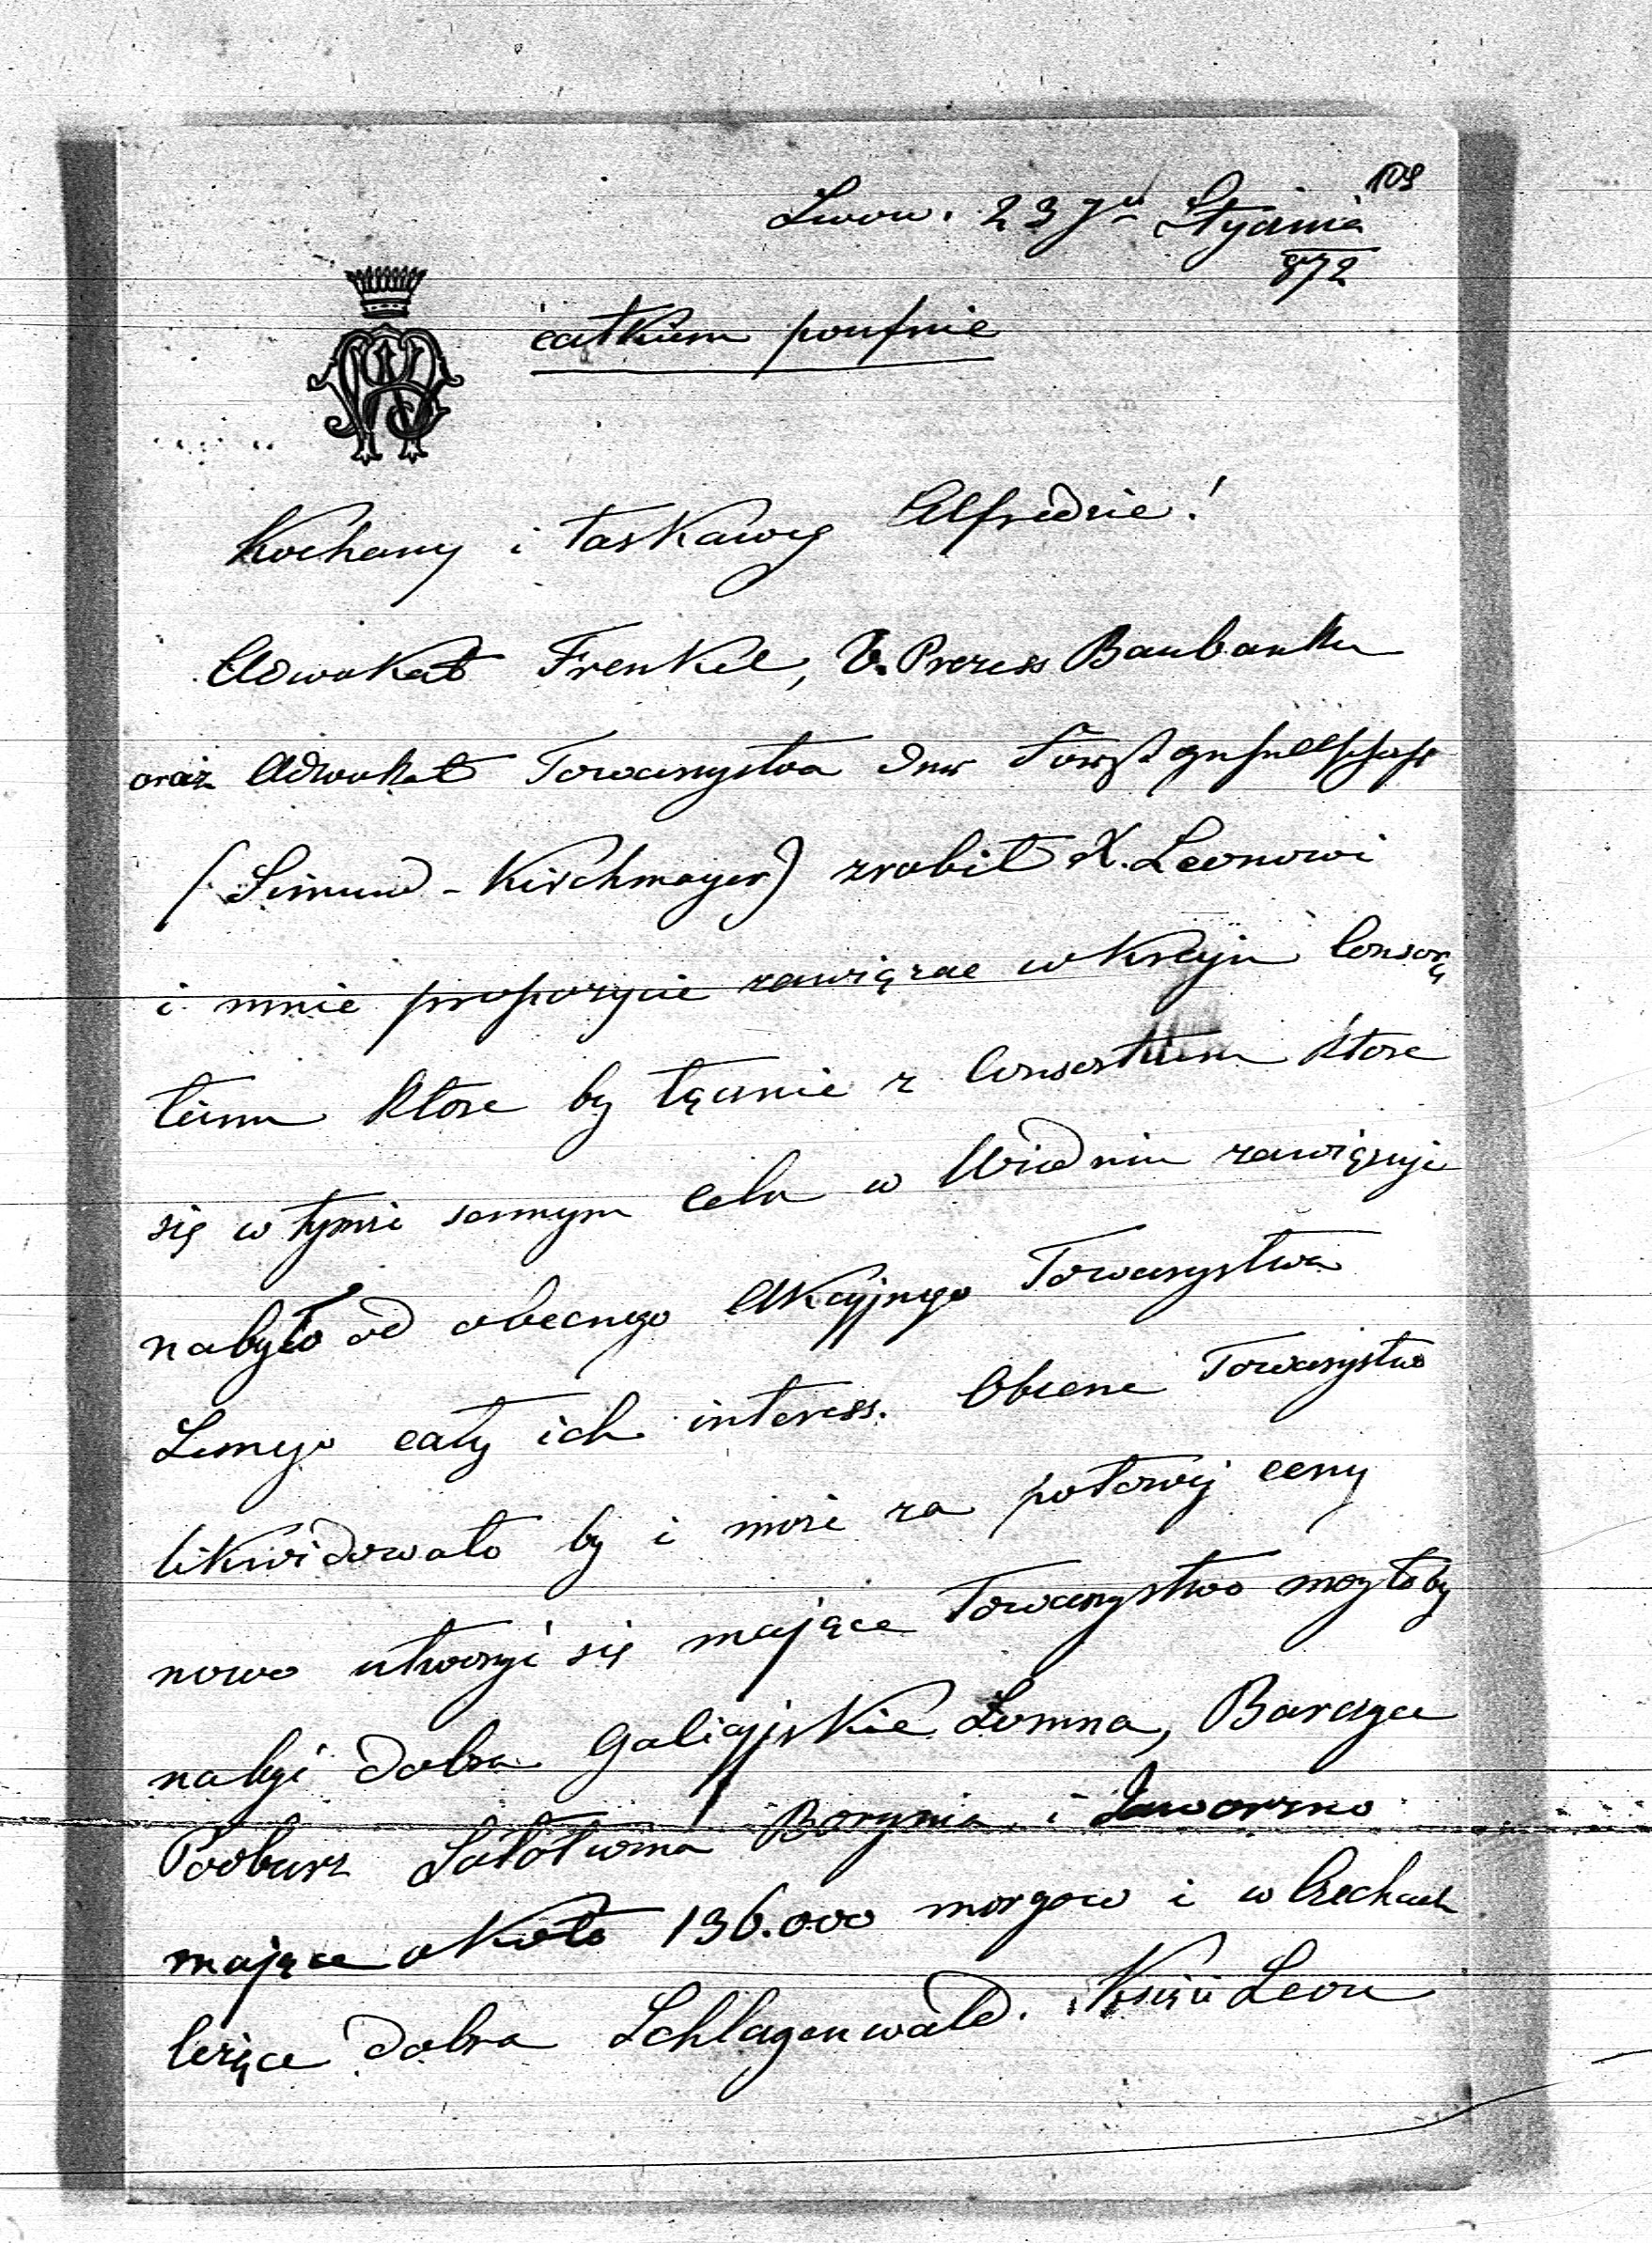 109
Lwow. 23go Stycznia
872
całkiem poufnie
Kochany i łaskawy Alfredzie!
Adwokat Frenkel, V. Prezess Baubanku
oraz Adwokat Towarzystwa der Forstgesellschaft
(Simund - Kirchmayer) zrobił X. Leonowi
i mnie propozycie zawiązac w Kraju Consor
tium ktore by łącznie z Consortium ktore
się w tymże samym celu w Wiedniu zawięzuje
nabyło od obecnego Akcyjnego Towarzystwa
Lesnego cały ich interess. Obecne Towarzystwo
likwidowało by i może za połowę ceny
nowo utworzyć się mające Towarzystwo mogłoby
nabyć dobra Galicyjskie Łomna, Barczyce
Podburz Sołotwina Borynia i Jaworzno
mające około 136.000 morgow i w Czechach
leżące dobra Schlagenwald. Książe Leon